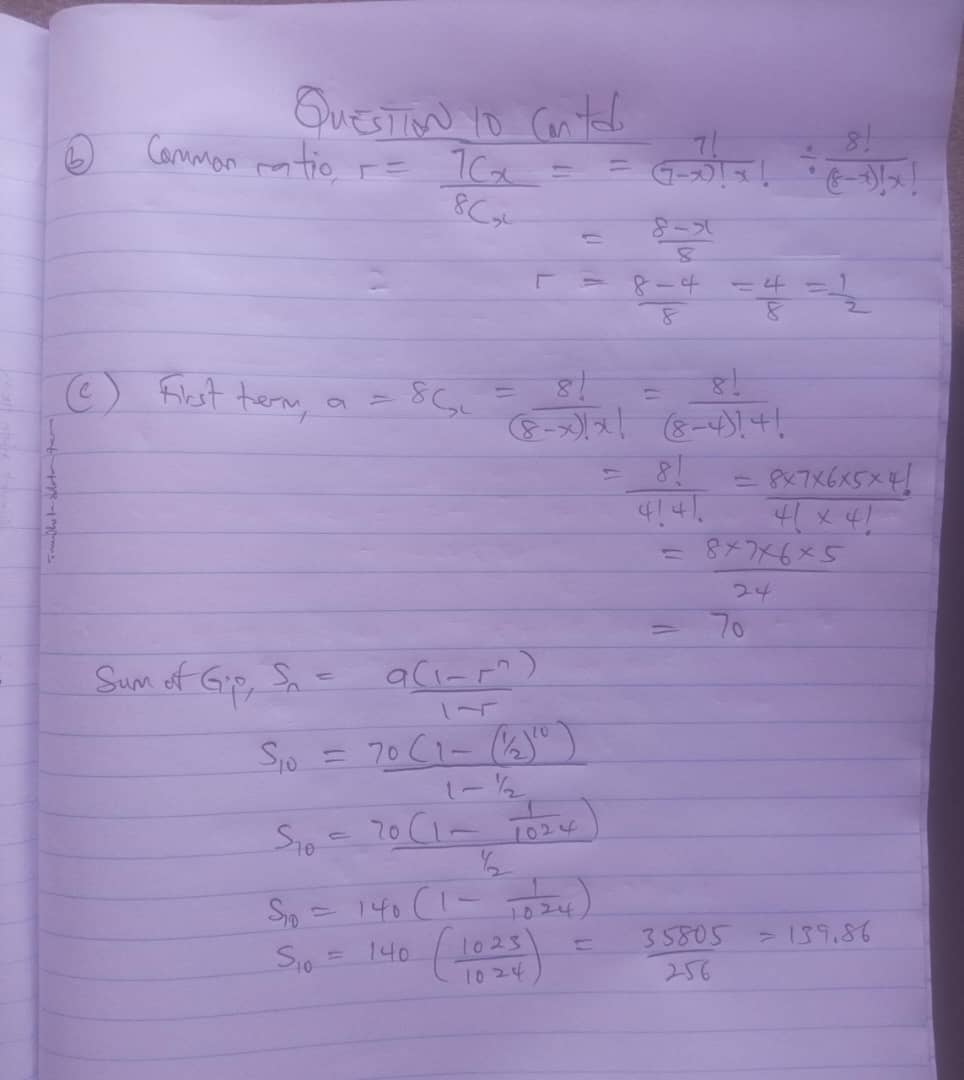 QUESTION 10 Contd
(b) Common ratio, r = 7Cx / 8Cx = = 7! / (7-x)! x! ÷ 8! / (8-x)! x!
= 8-x / 8
= r = 8-4 / 8 = 4/8 = 1/2
(c) First term, a = 8Cx = 8! / (8-x)! x! = 8! / (8-4)! 4!
= 8! / 4! 4! = 8x7x6x5x4! / 4! x 4!
= 8x7x6x5 / 24
= 70
Sum of G.p, Sn = a(1-rⁿ) / 1-r
S10 = 70(1-(1/2)¹⁰) / 1-1/2
S10 = 70(1- 1/1024) / 1/2
S10 = 140(1- 1/1024)
S10 = 140 (1023/1024) = 35805/256 = 139.86